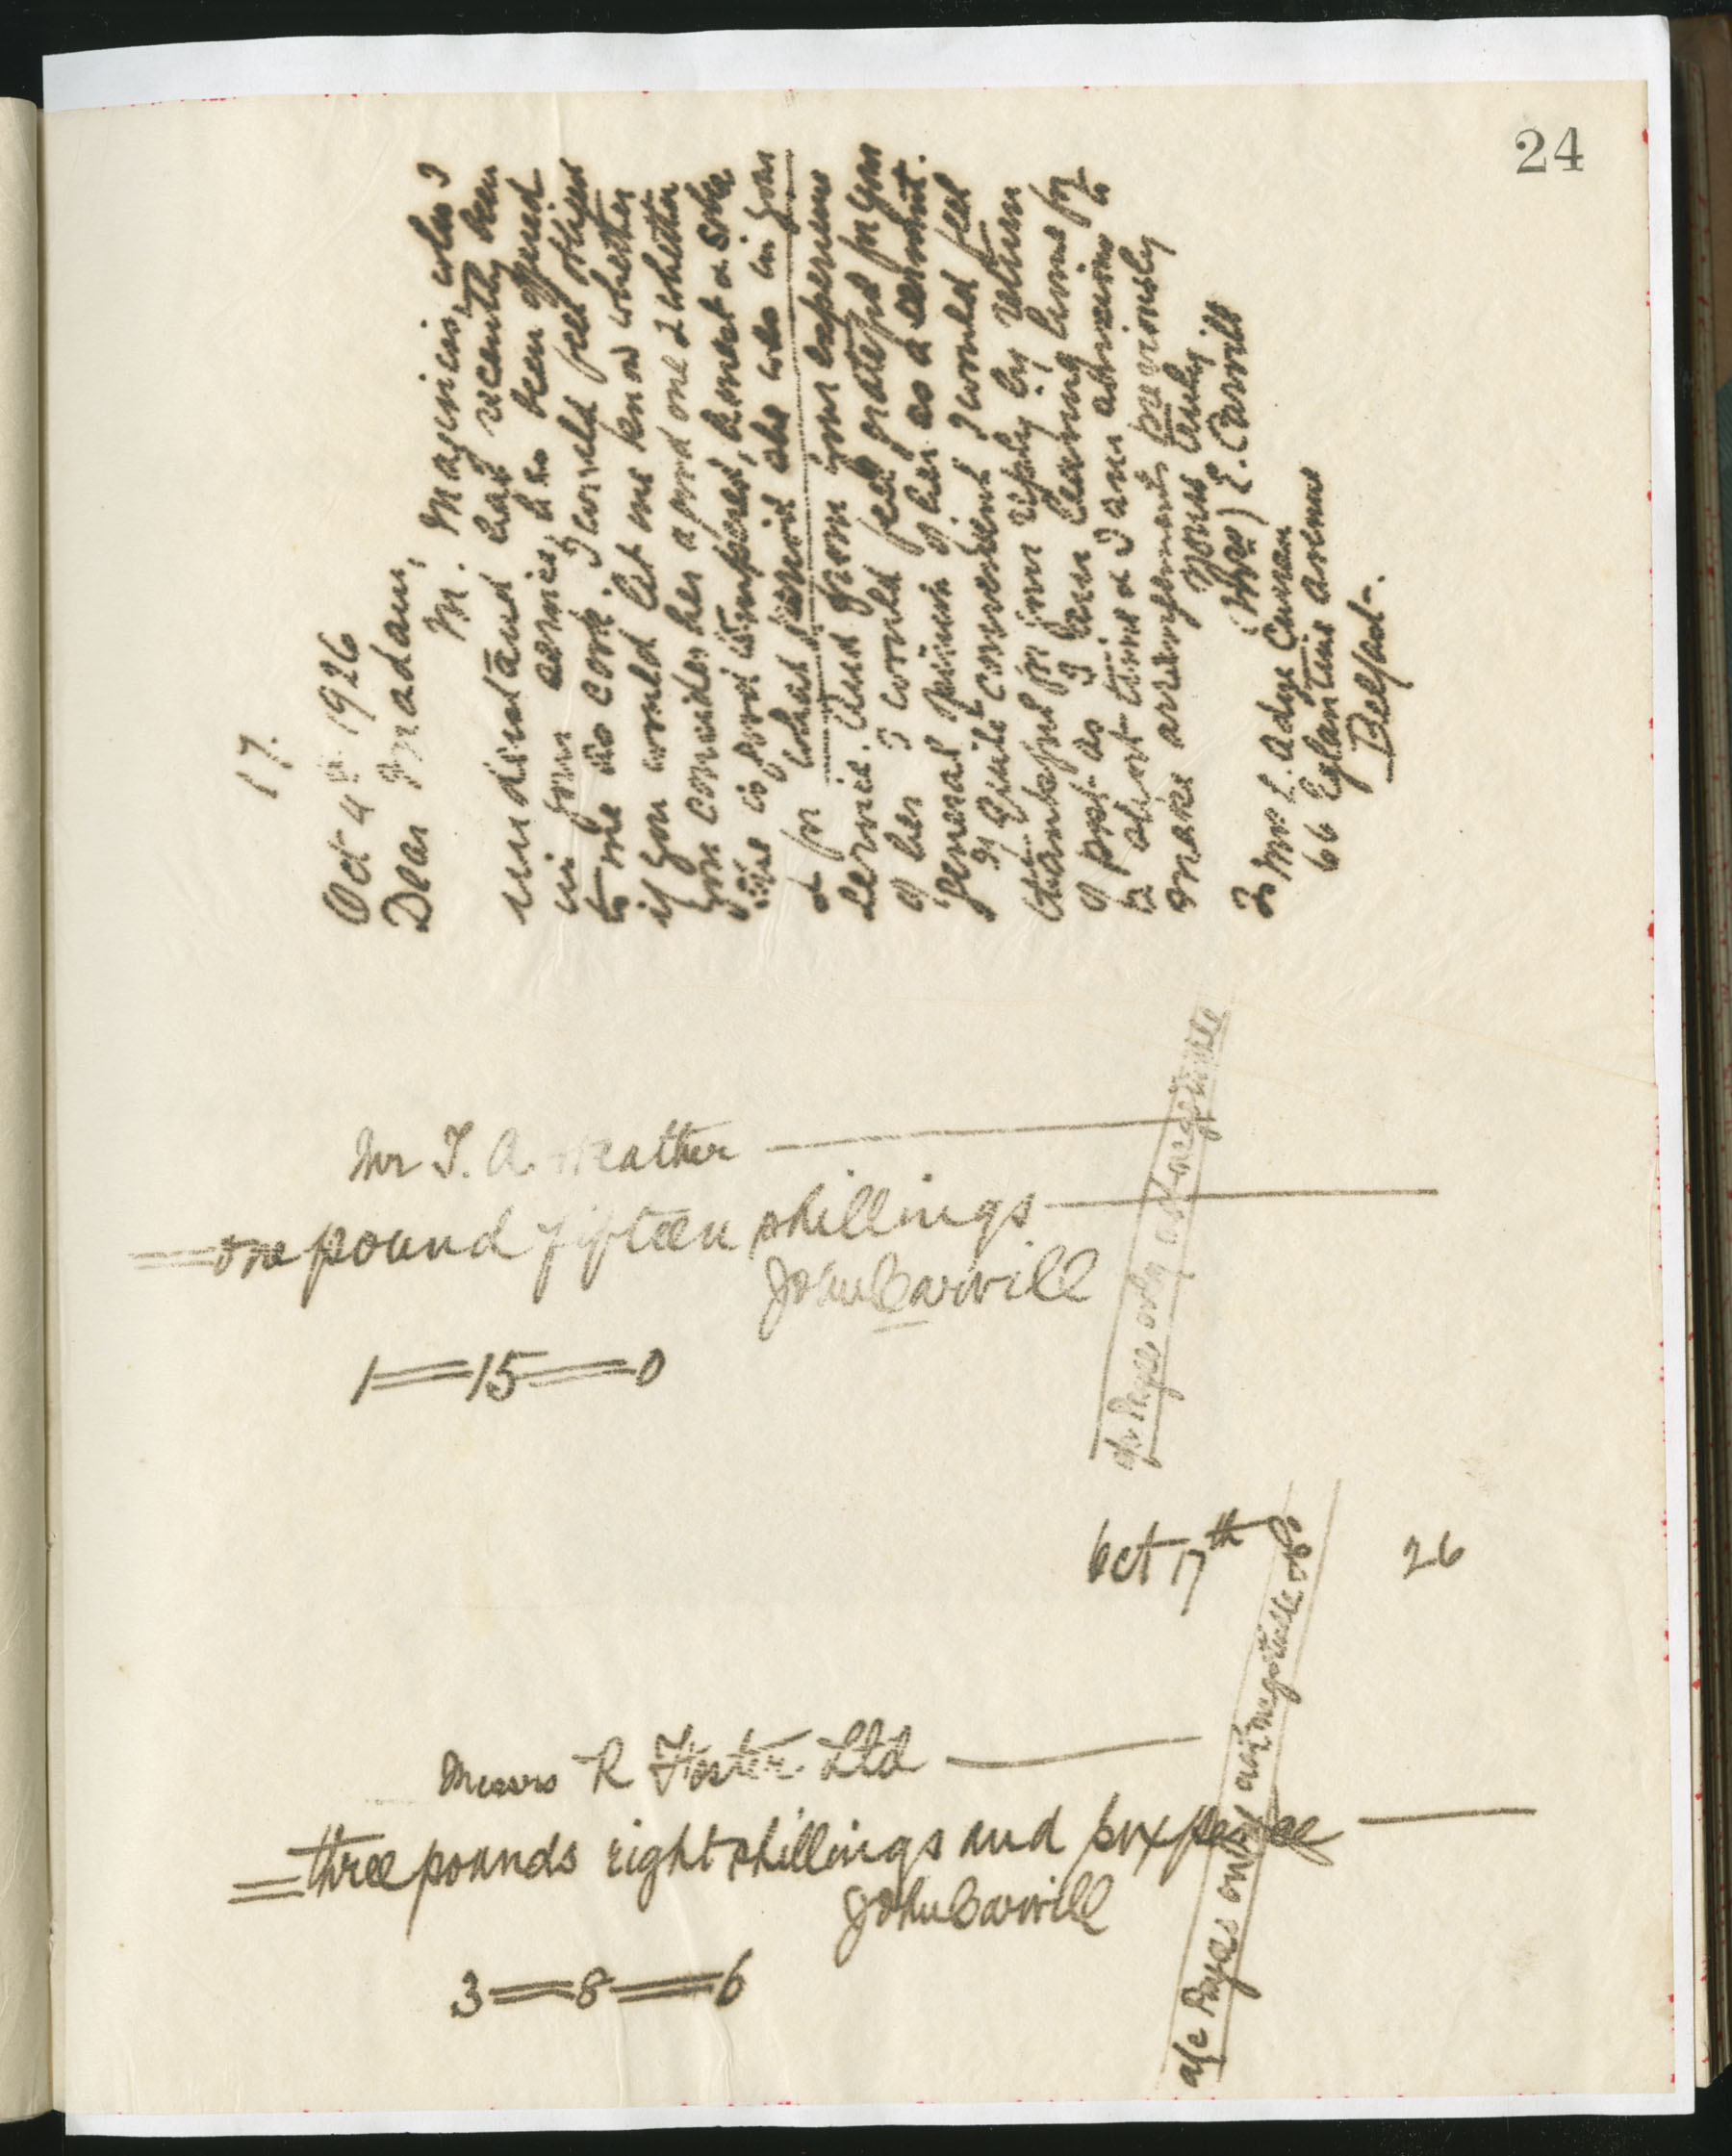 24
17.
Oct 4th 1926
Dear Madam,
M. Maginnis, who I
understand has recently been
in your service, has been offered
to me as cook. I would feel obliged
if you would let me know whether
you consider her a good one & whether
she is good tempered, honest & sober
& for what period she was in your
service. And from your experience
of her I would feel grateful for your
general opinion of her as a servant.
If quite convenient I would feel
thankful for your reply by return
of post as I am leaving home for
a short time & I am anxious to
make arrangements previously
Yours truly
(Mrs) E. Carvill
To Mrs L. Adge Curran
66 Eglantine Avenue
Belfast.
Mr T. A. Heather
one pound fifteen shillings
John Carvill
1=15=0
a/c Payee only not negotiable
Oct 17th 26
Messrs R Foster Ltd
three pounds eight shillings and sixpence
John Carvill
3=8=6
a/c Payees only not negotiable